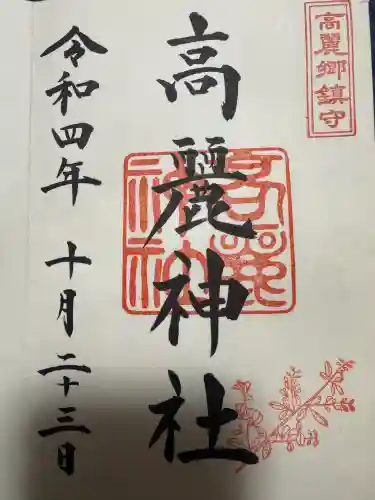 高麗郷鎮守
高麗神社
高麗神社
令和四年 十月二十三日